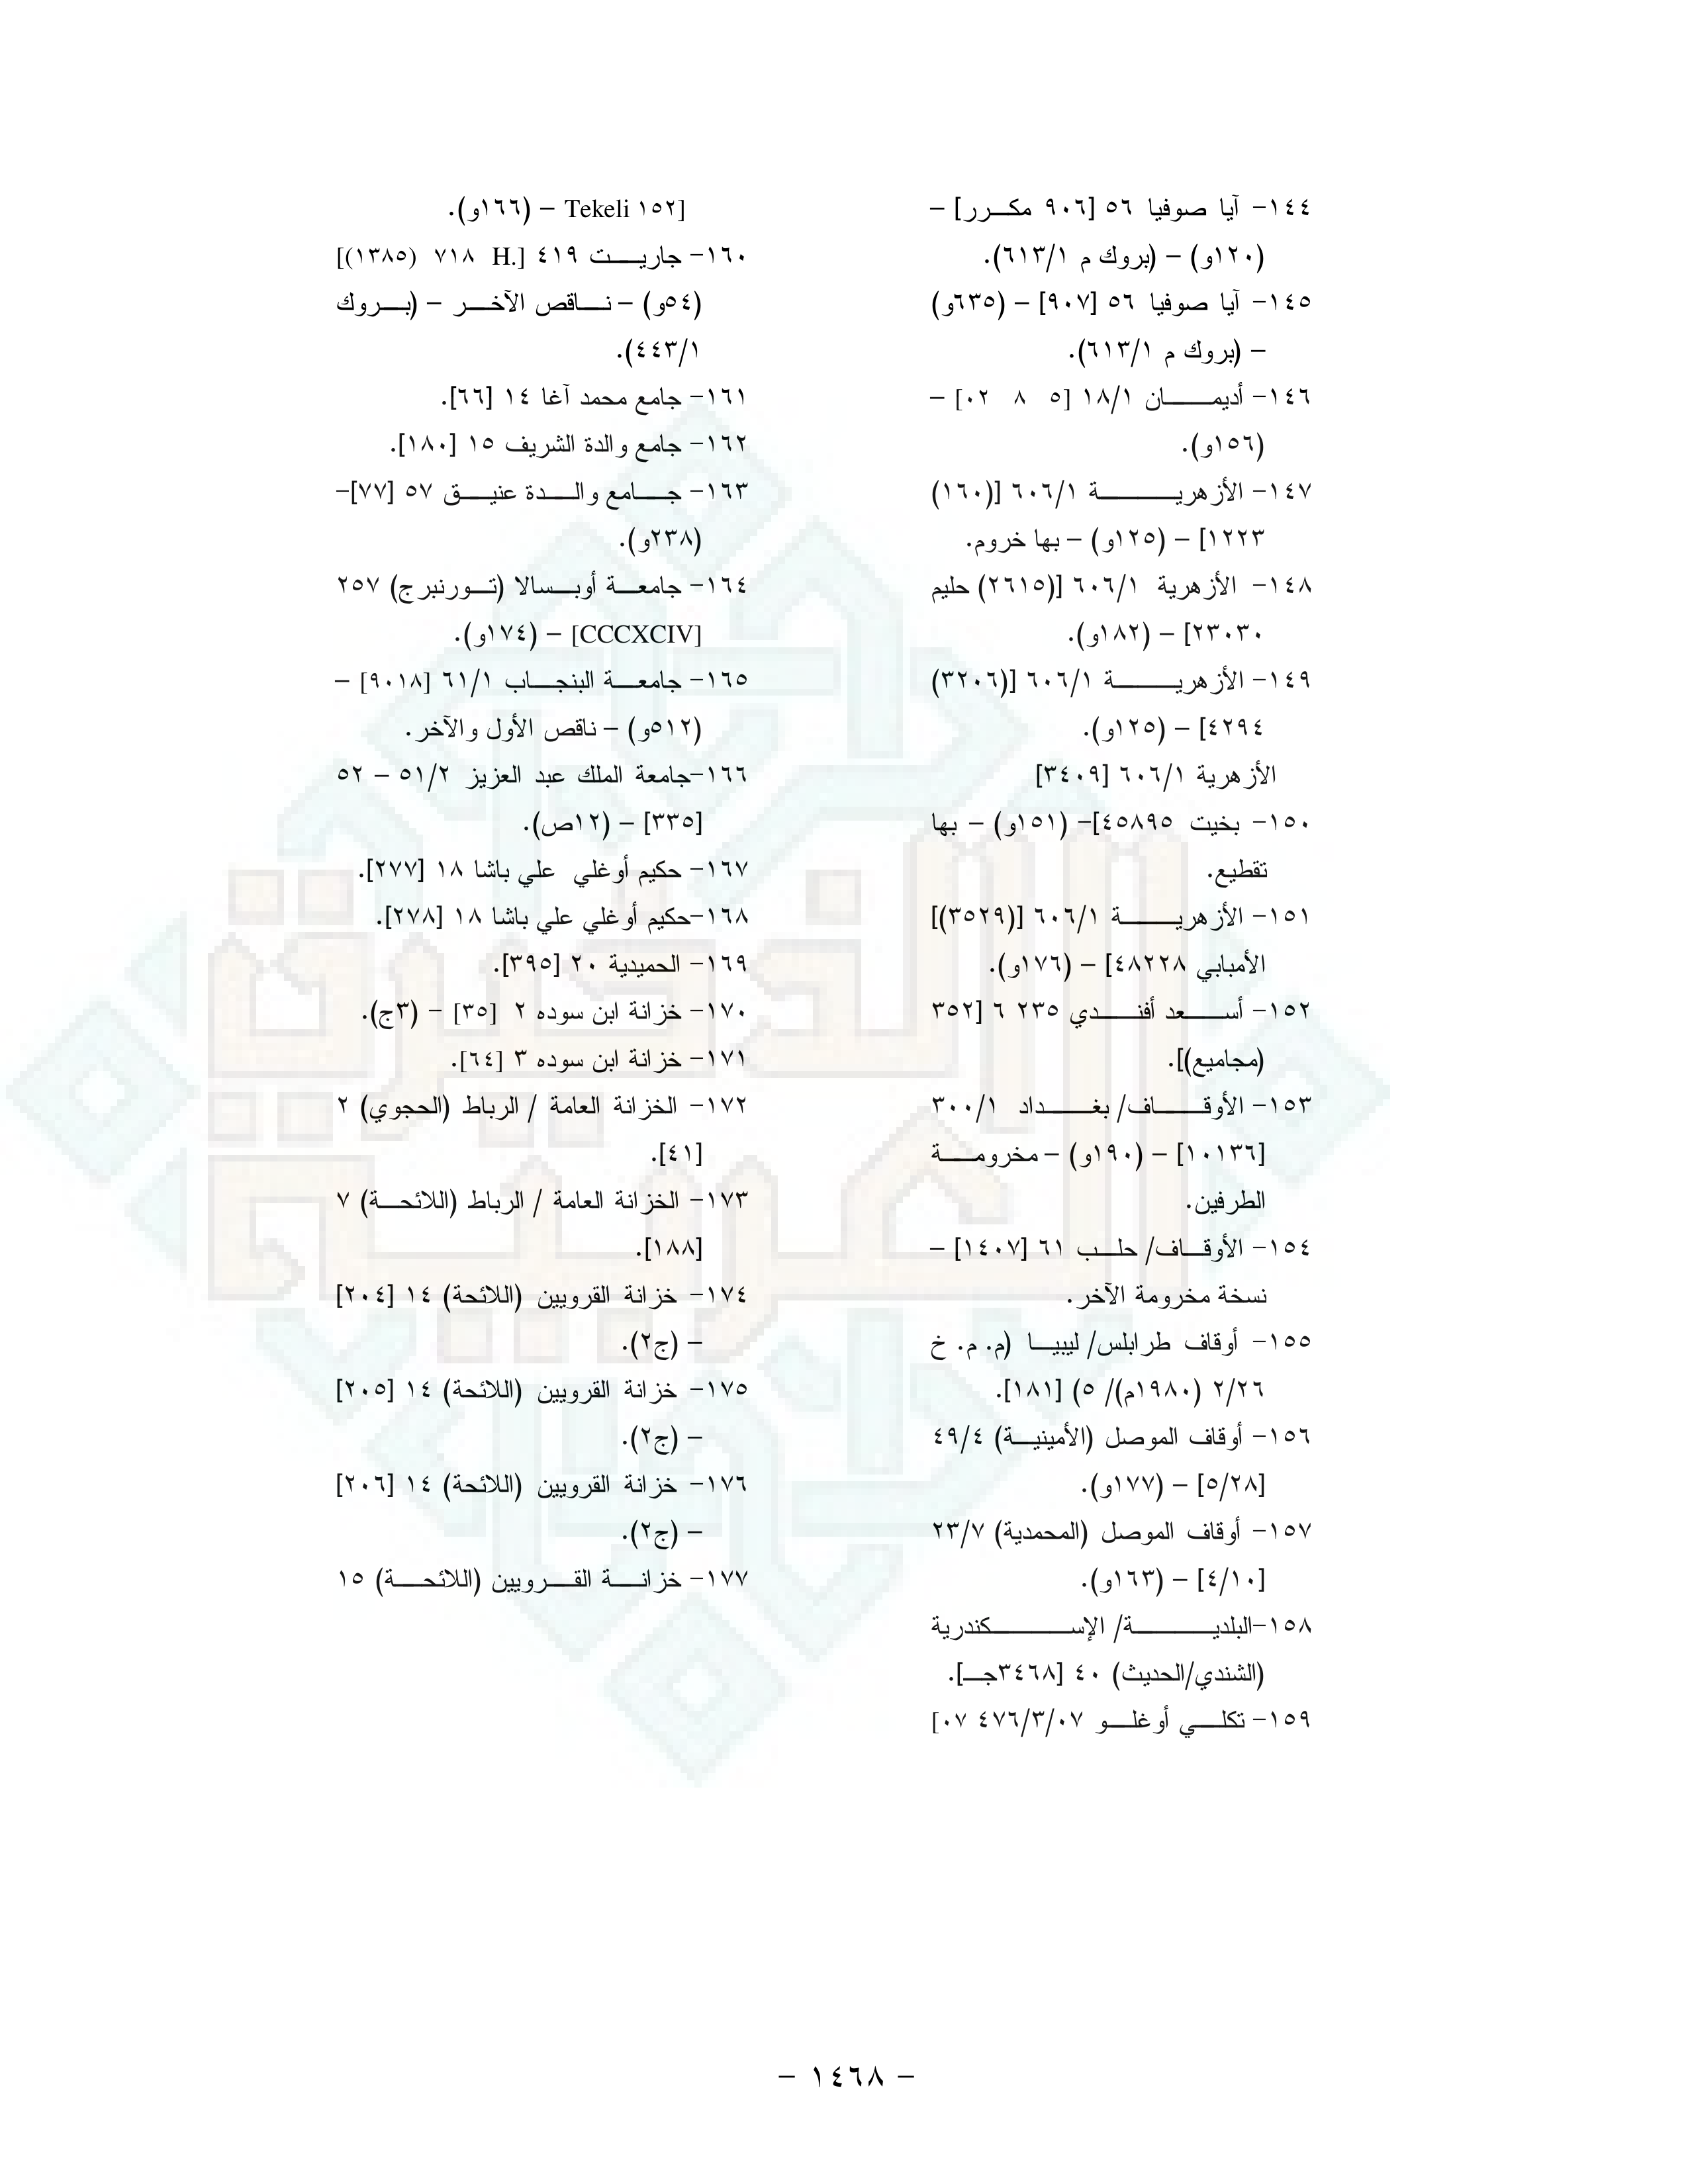 ١٤٤- آيا صوفيا ٥٦ [٩٠٦ مكرر] –
(١٢٠و) – (بروك م ٦١٣/١).
١٤٥- آيا صوفيا ٥٦ [٩٠٧] – (٦٣٥و)
– (بروك م ٦١٣/١).
١٤٦- أديمان ١٨/١ [٥ ٨ ٠٢] –
(١٥٦و).
١٤٧- الأزهرية ٦٠٦/١ [(١٦٠)
١٢٢٣] – (١٢٥و) – بها خروم.
١٤٨- الأزهرية ٦٠٦/١ [(٢٦١٥) حليم
٢٣٠٣٠] – (١٨٢و).
١٤٩- الأزهرية ٦٠٦/١ [(٣٢٠٦)
٤٢٩٤] – (١٢٥و).
الأزهرية ٦٠٦/١ [٣٤٠٩]
١٥٠- بخيت ٤٥٨٩٥]- (١٥١و) – بها
تقطيع.
١٥١- الأزهرية ٦٠٦/١ [(٣٥٢٩)]
الأمبابي ٤٨٢٢٨] – (١٧٦و).
١٥٢- أسعد أفندي ٢٣٥ ٦ [٣٥٢
(مجاميع)].
١٥٣- الأوقاف/ بغداد ٣٠٠/١
[١٠١٣٦] – (١٩٠و) – مخرومة
الطرفين.
١٥٤- الأوقاف/ حلب ٦١ [١٤٠٧] –
نسخة مخرومة الآخر.
١٥٥- أوقاف طرابلس/ ليبيا (م. م. خ
٢/٢٦ (١٩٨٠م)/ ٥) [١٨١].
١٥٦- أوقاف الموصل (الأمينية) ٤٩/٤
[٥/٢٨] – (١٧٧و).
١٥٧- أوقاف الموصل (المحمدية) ٢٣/٧
[٤/١٠] – (١٦٣و).
١٥٨-البلدية/ الإسكندرية
(الشندي/الحديث) ٤٠ [٣٤٦٨جـ].
١٥٩- تكلي أوغلو ٤٧٦/٣/٠٧ ٠٧]
[Tekeli ١٥٢ – (١٦٦و).
١٦٠- جاريت ٤١٩ [.H ٧١٨ (١٣٨٥)]
(٥٤و) – ناقص الآخر – (بروك
٤٤٣/١).
١٦١- جامع محمد آغا ١٤ [٦٦].
١٦٢- جامع والدة الشريف ١٥ [١٨٠].
١٦٣- جامع والدة عنيق ٥٧ [٧٧]-
(٢٣٨و).
١٦٤- جامعة أوبسالا (تورنبرج) ٢٥٧
[CCCXCIV] – (١٧٤و).
١٦٥- جامعة البنجاب ٦١/١ [٩٠١٨] –
(٥١٢و) – ناقص الأول والآخر.
١٦٦-جامعة الملك عبد العزيز ٥١/٢ – ٥٢
[٣٣٥] – (١٢ص).
١٦٧- حكيم أوغلي علي باشا ١٨ [٢٧٧].
١٦٨-حكيم أوغلي علي باشا ١٨ [٢٧٨].
١٦٩- الحميدية ٢٠ [٣٩٥].
١٧٠- خزانة ابن سوده ٢ [٣٥] – (ج٣).
١٧١- خزانة ابن سوده ٣ [٦٤].
١٧٢- الخزانة العامة / الرباط (الحجوي) ٢
[٤١].
١٧٣- الخزانة العامة / الرباط (اللائحة) ٧
[١٨٨].
١٧٤- خزانة القرويين (اللائحة) ١٤ [٢٠٤]
– (ج٢).
١٧٥- خزانة القرويين (اللائحة) ١٤ [٢٠٥]
– (ج٢).
١٧٦- خزانة القرويين (اللائحة) ١٤ [٢٠٦]
– (ج٢).
١٧٧- خزانة القرويين (اللائحة) ١٥
الذخيرة
العربية
– ١٤٦٨ –